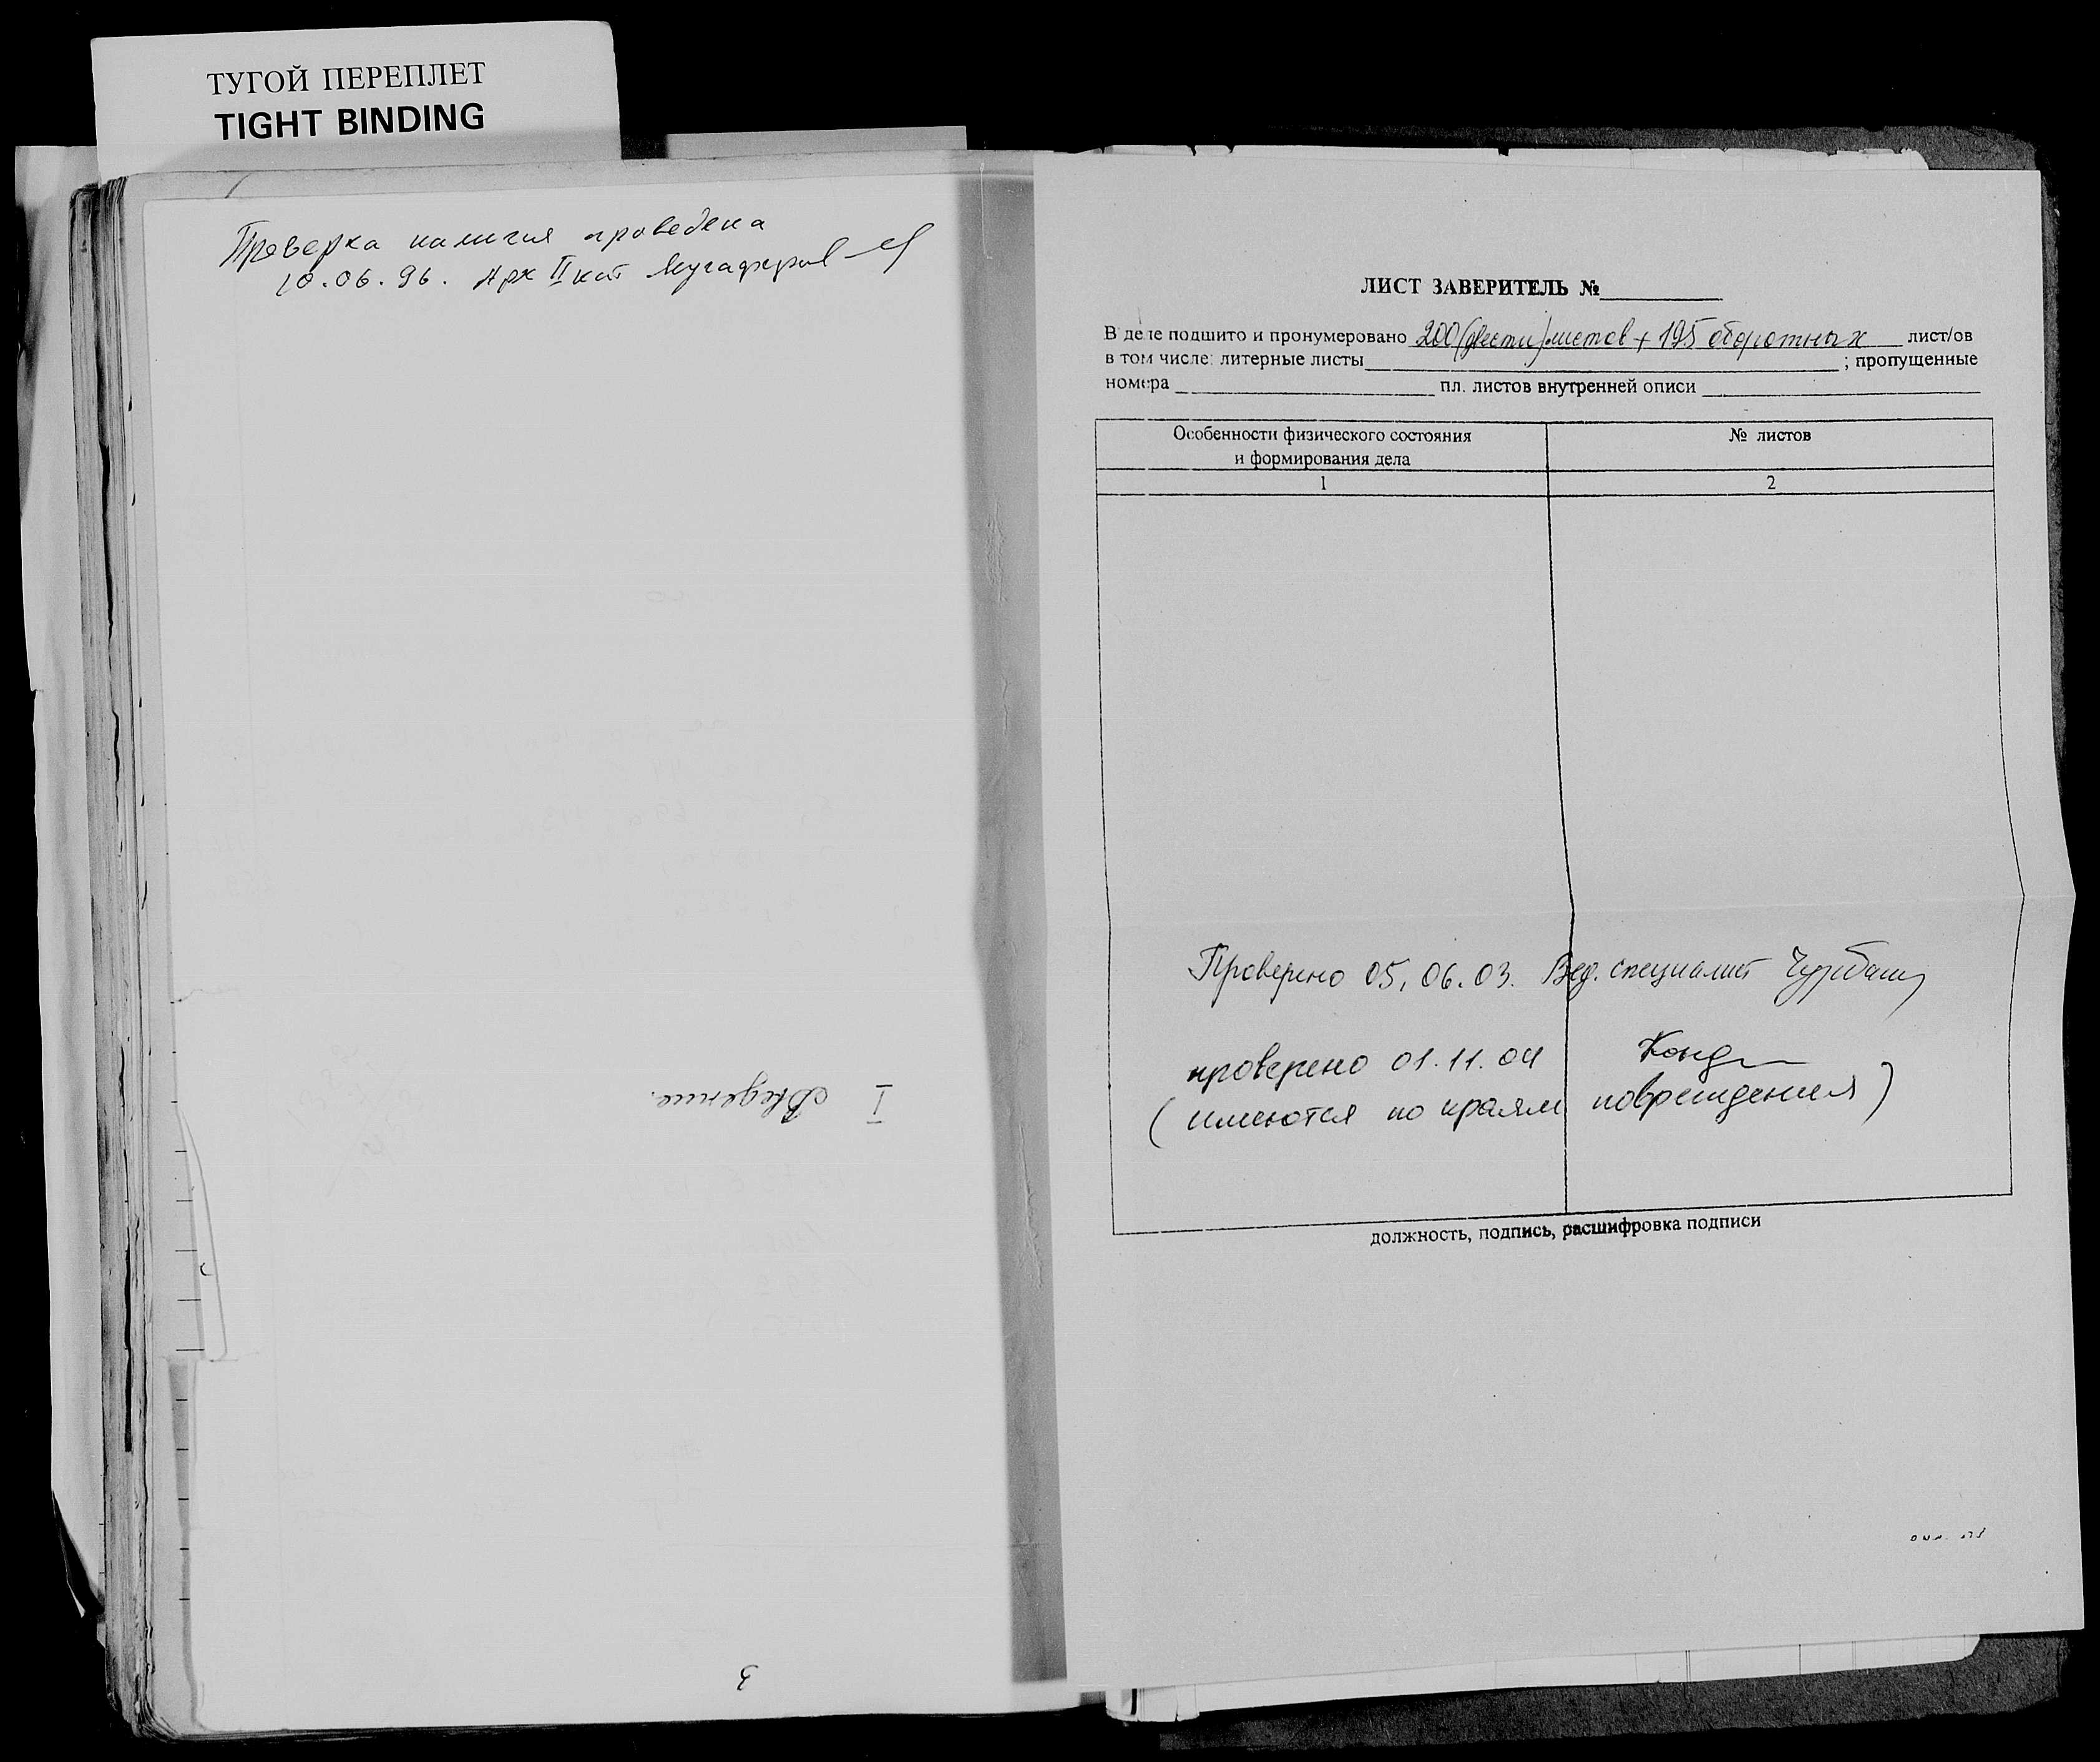 ТУГОЙ ПЕРЕПЛЕТ
TIGHT BINDING
Проверка наличия проведена
10.06.96. Арх II кат
I
Введение.
3
ЛИСТ ЗАВЕРИТЕЛЬ №
В деле подшито и пронумеровано 200 (двести) листов + 195 оборотных лист/ов
в том числе: литерные листы ; пропущенные
номера пл. листов внутренней описи
Особенности физического состояния № листов
и формирования дела
1 2
Проверено 05.06.03. Вед. специалист
проверено 01.11.04
(имеются по краям повреждения)
должность, подпись, расшифровка подписи